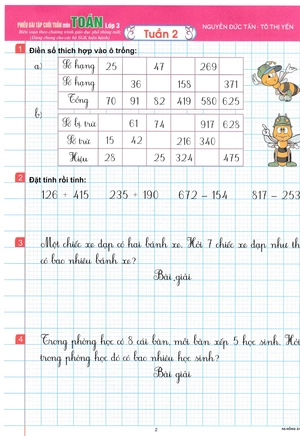 PHIẾU BÀI TẬP CUỐI TUẦN môn TOÁN Lớp 3
Biên soạn theo chương trình giáo dục phổ thông mới
(Dùng chung cho các bộ SGK hiện hành)
NGUYỄN ĐỨC TẤN - TÔ THỊ YẾN
Tuần 2
1 Điền số thích hợp vào ô trống:
a)
Số hạng 25 47 269
Số hạng 36 158 371
Tổng 70 91 82 419 580 625
b)
Số bị trừ 61 74 917 628
Số trừ 15 42 216 340
Hiệu 28 25 324 475
2 Đặt tính rồi tính:
126 + 415 235 + 190 672 - 154 817 - 253
3 Một chiếc xe đạp có hai bánh xe. Hỏi 7 chiếc xe đạp như th
có bao nhiêu bánh xe?
Bài giải
4 Trong phòng học có 8 cái bàn, mỗi bàn xếp 5 học sinh. Hỏi
trong phòng học đó có bao nhiêu học sinh?
Bài giải
2